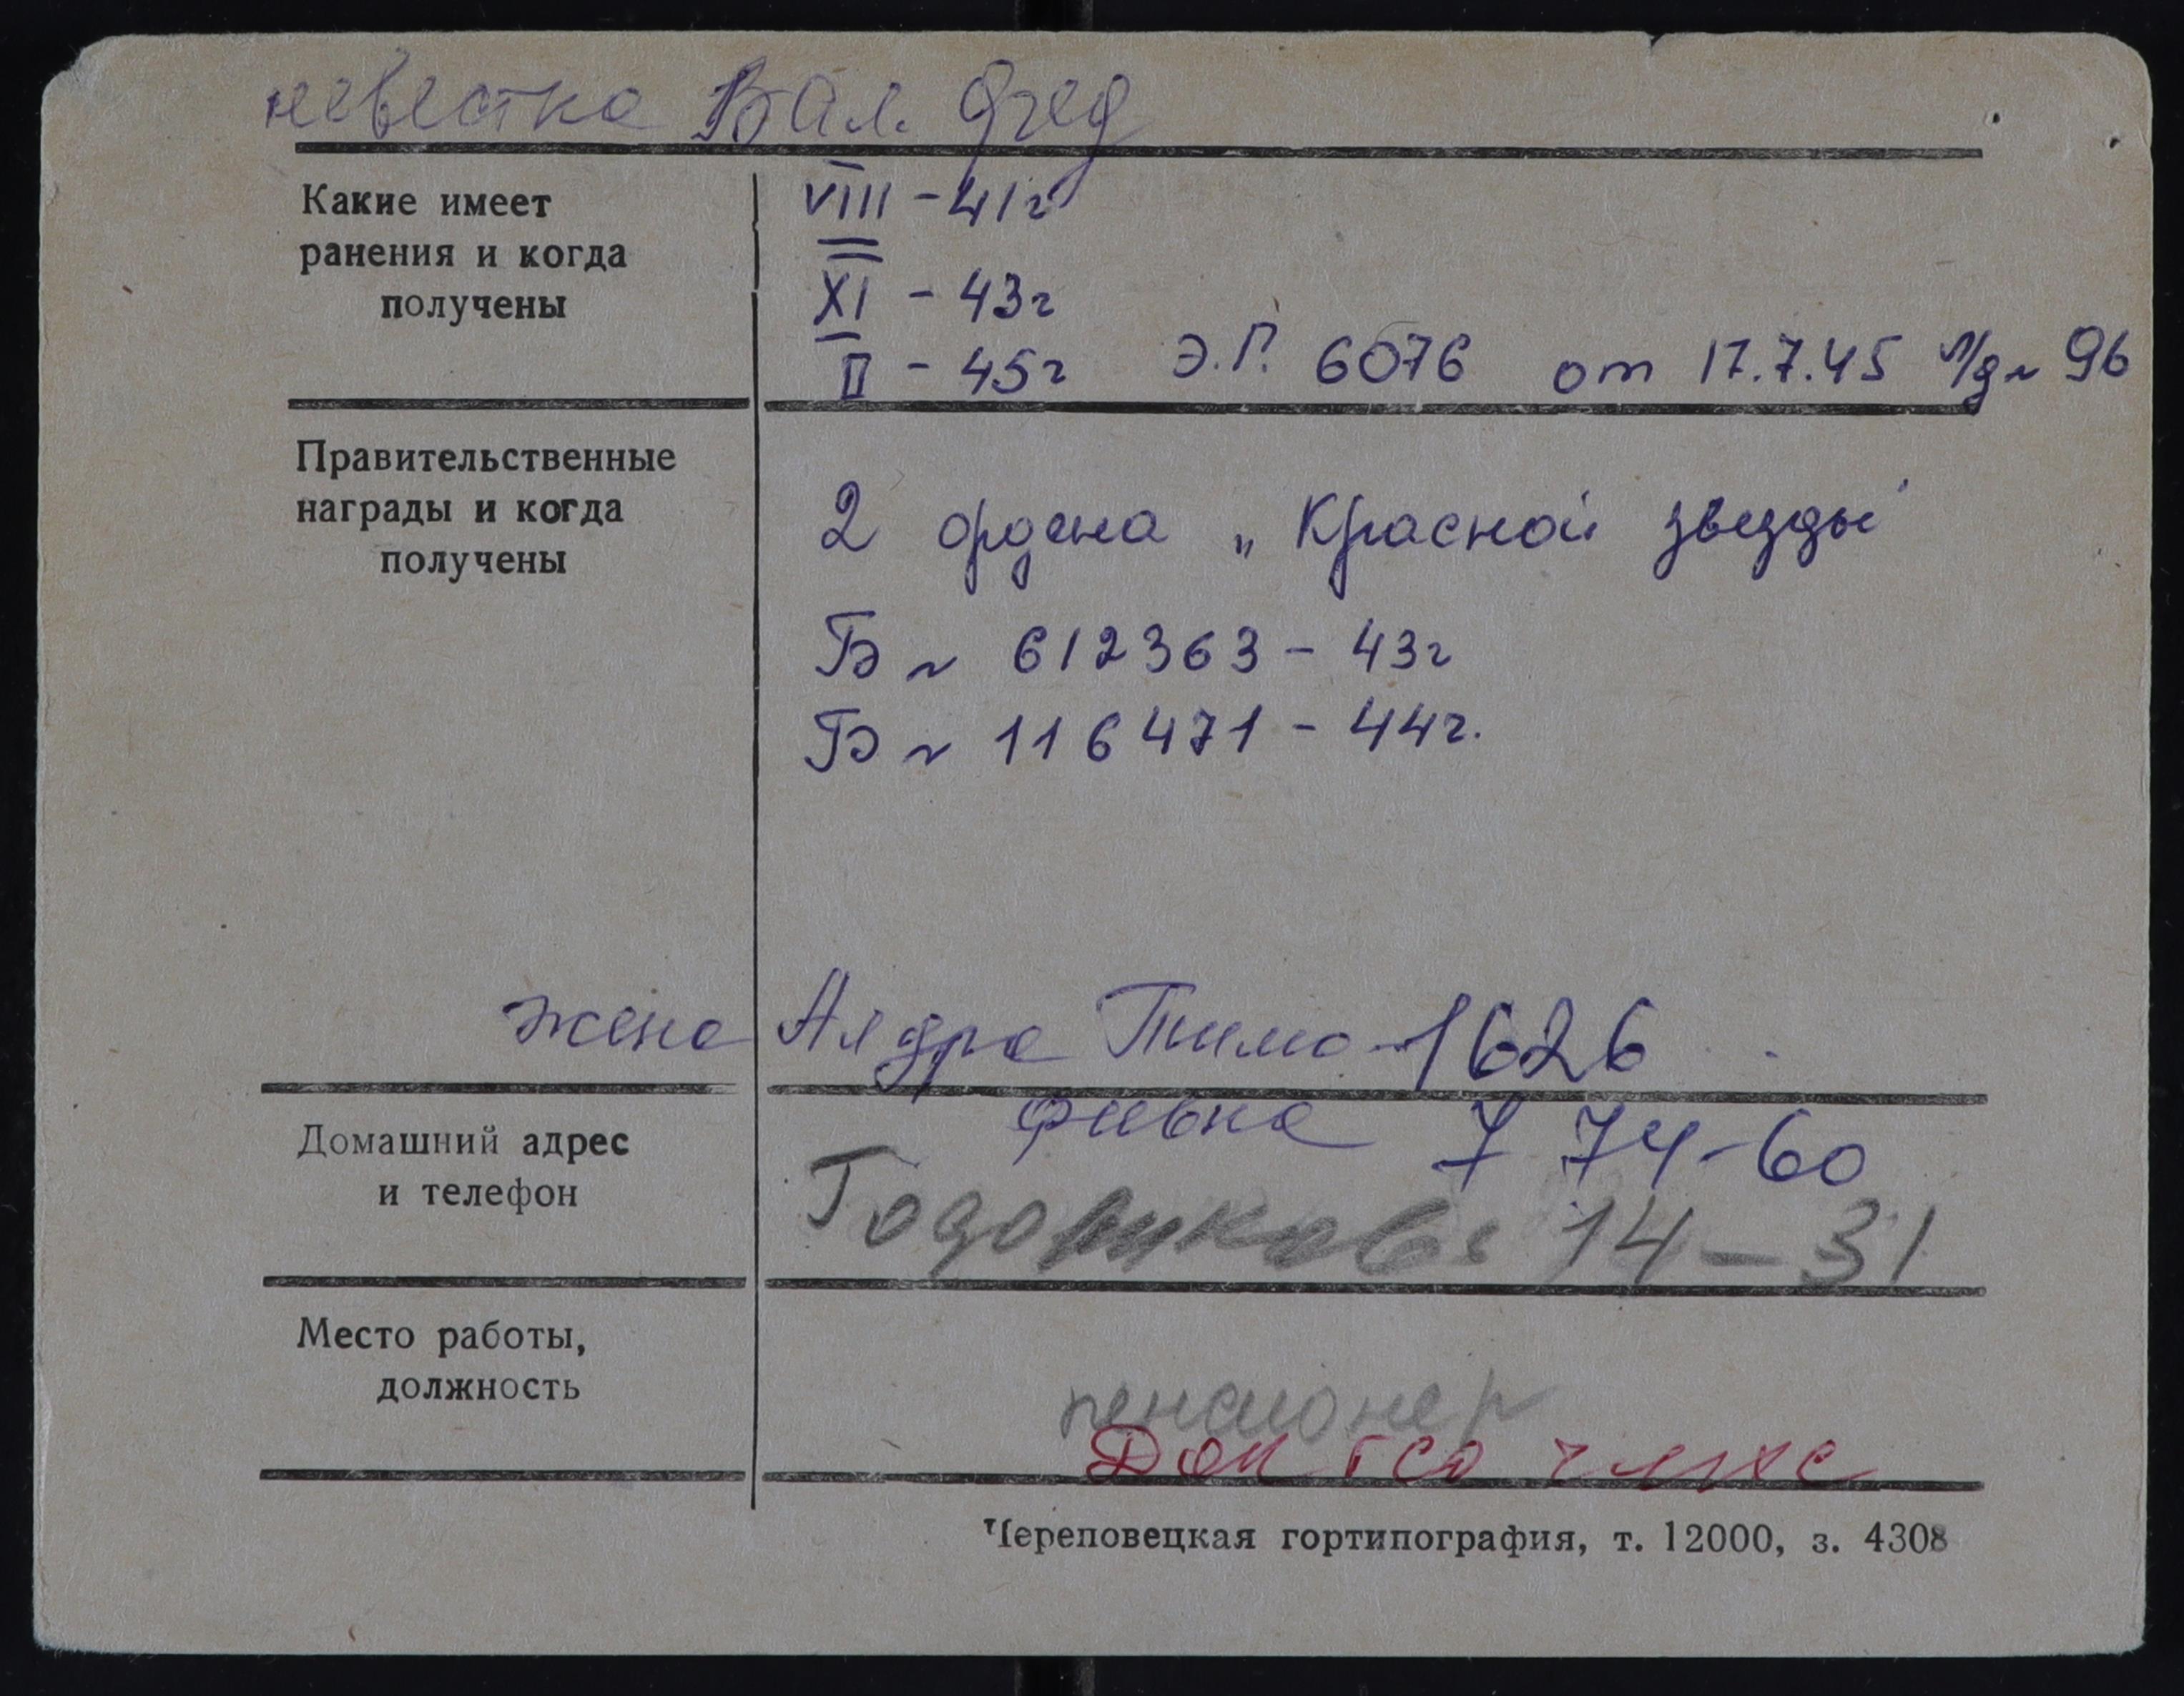 невестка Вал. Фед
Какие имеет
ранения и когда
получены
VIII - 41г
XI - 43г
II - 45г Э.Г. 6076 от 17.7.45 № 96
Правительственные
награды и когда
получены
2 ордена „Красной звезды"
Б № 612363 - 43г
Б № 116471 - 44г.
жена Алдра Тимо- 1626
феевна 7 74-60
Домашний адрес
и телефон
Годовикова 14-31
Место работы,
должность
пенсионер
Череповецкая гортипография, т. 12000, з. 4308